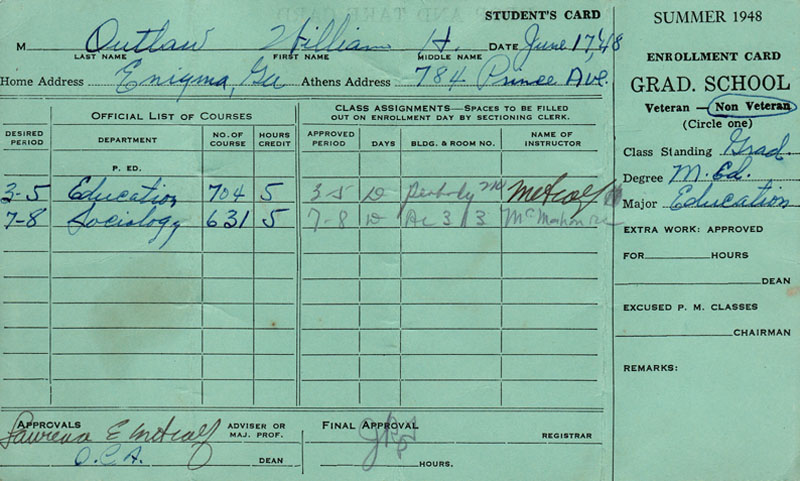 STUDENT'S CARD
M Outlaw William H. DATE June 17, '48
LAST NAME FIRST NAME MIDDLE NAME
Home Address Enigma, Ga Athens Address 784 Prince Ave.
OFFICIAL LIST OF COURSES
CLASS ASSIGNMENTS—SPACES TO BE FILLED
OUT ON ENROLLMENT DAY BY SECTIONING CLERK.
DESIRED PERIOD DEPARTMENT NO. OF COURSE HOURS CREDIT APPROVED PERIOD DAYS BLDG. & ROOM NO. NAME OF INSTRUCTOR
P. ED.
3-5 Education 704 5 3-5 D Peabody Metcalf
7-8 Sociology 631 5 7-8 D 3 McMahon
APPROVALS ADVISER OR MAJ. PROF.
E Metcalf
O.C.A. DEAN
FINAL APPROVAL REGISTRAR
HOURS.
SUMMER 1948
ENROLLMENT CARD
GRAD. SCHOOL
Veteran — Non Veteran
(Circle one)
Class Standing Grad.
Degree M. Ed.
Major Education
EXTRA WORK: APPROVED
FOR HOURS
DEAN
EXCUSED P. M. CLASSES
CHAIRMAN
REMARKS: